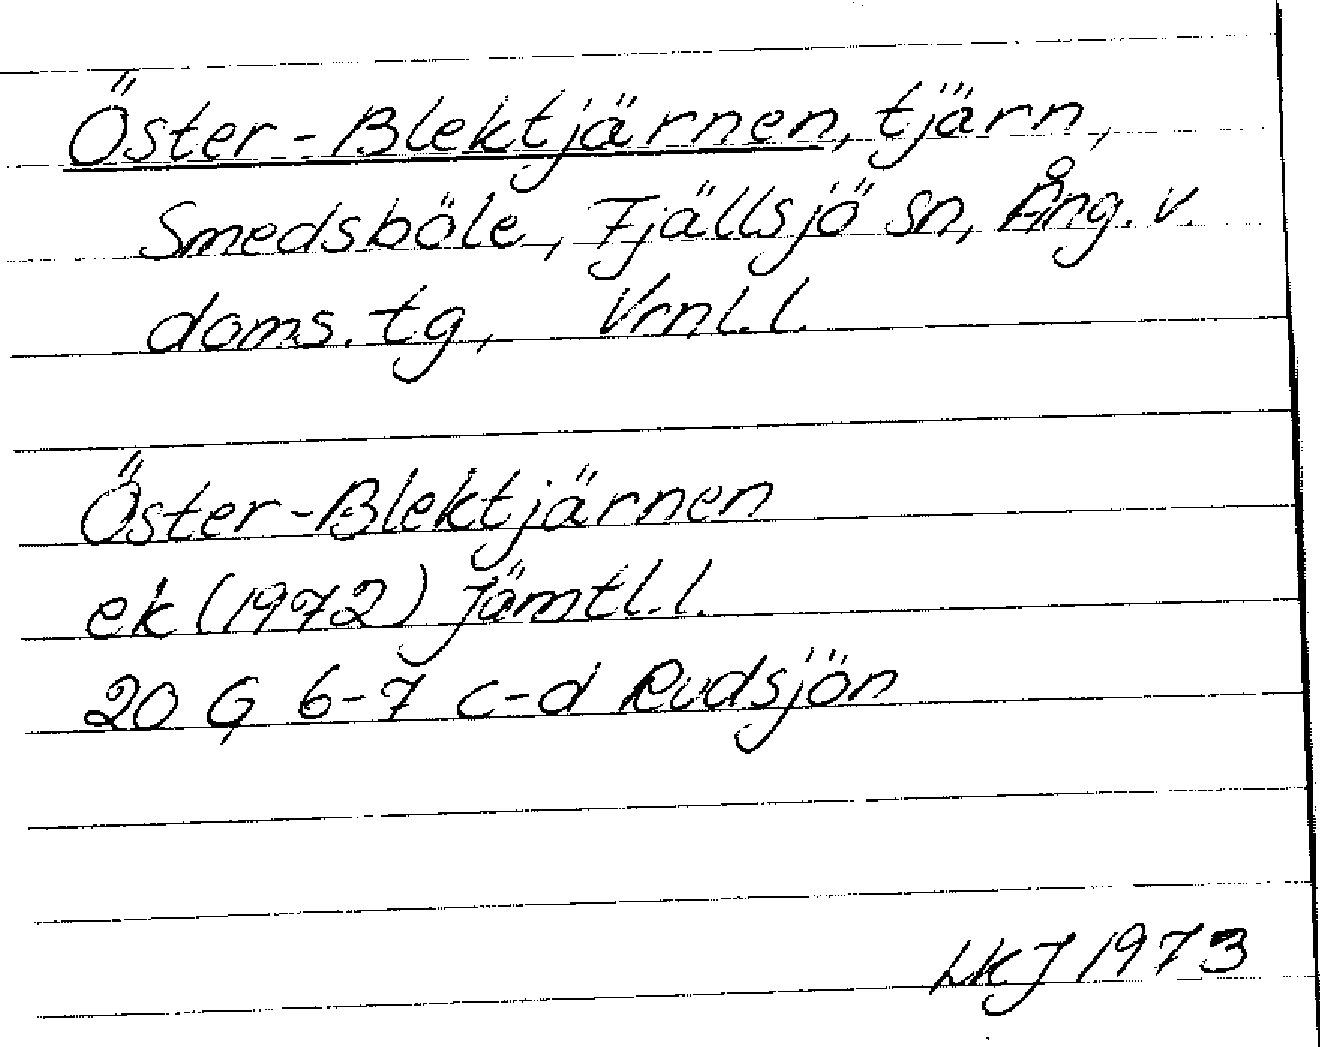 Öster-Blektjärnen, tjärn,
Smedsböle, Fjällsjö sn, Ång. v.
doms. tg, Vrnl. l.
Öster-Blektjärnen
ek (1972) Jämtl. l.
20 G 6-7 c-d Rudsjön
LKJ 1973